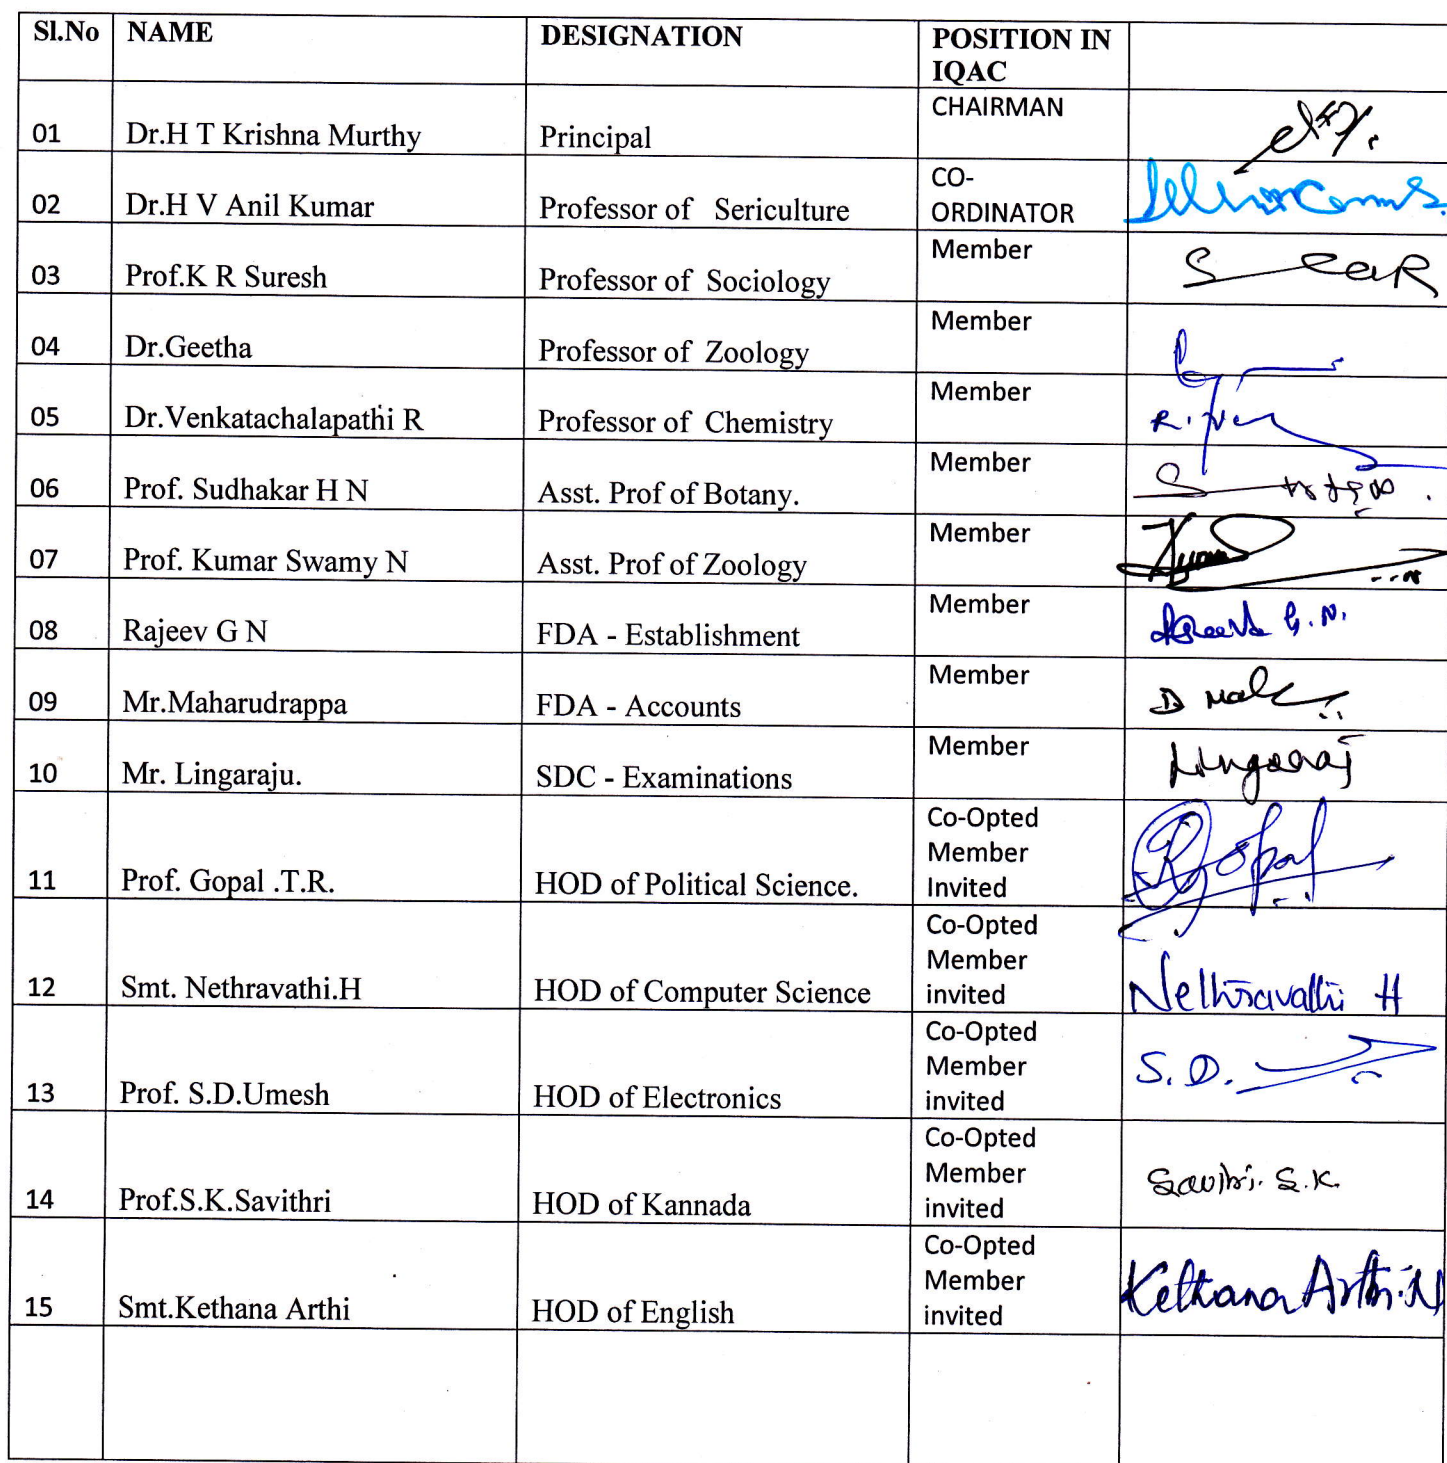 Sl.No NAME DESIGNATION POSITION IN
IQAC
01 Dr.H T Krishna Murthy Principal CHAIRMAN
02 Dr.H V Anil Kumar Professor of Sericulture CO-
ORDINATOR
03 Prof.K R Suresh Professor of Sociology Member
04 Dr.Geetha Professor of Zoology Member
05 Dr.Venkatachalapathi R Professor of Chemistry Member
06 Prof. Sudhakar H N Asst. Prof of Botany. Member
07 Prof. Kumar Swamy N Asst. Prof of Zoology Member
08 Rajeev G N FDA - Establishment Member
G.N.
09 Mr.Maharudrappa FDA - Accounts Member
10 Mr. Lingaraju. SDC - Examinations Member
Lingaraj
11 Prof. Gopal .T.R. HOD of Political Science. Co-Opted
Member
Invited
Gopal
12 Smt. Nethravathi.H HOD of Computer Science Co-Opted
Member
invited
Nethravathi H
13 Prof. S.D.Umesh HOD of Electronics Co-Opted
Member
invited
S.D.
14 Prof.S.K.Savithri HOD of Kannada Co-Opted
Member
invited
Savithri. S.K.
15 Smt.Kethana Arthi HOD of English Co-Opted
Member
invited
Kethana Arthi.N